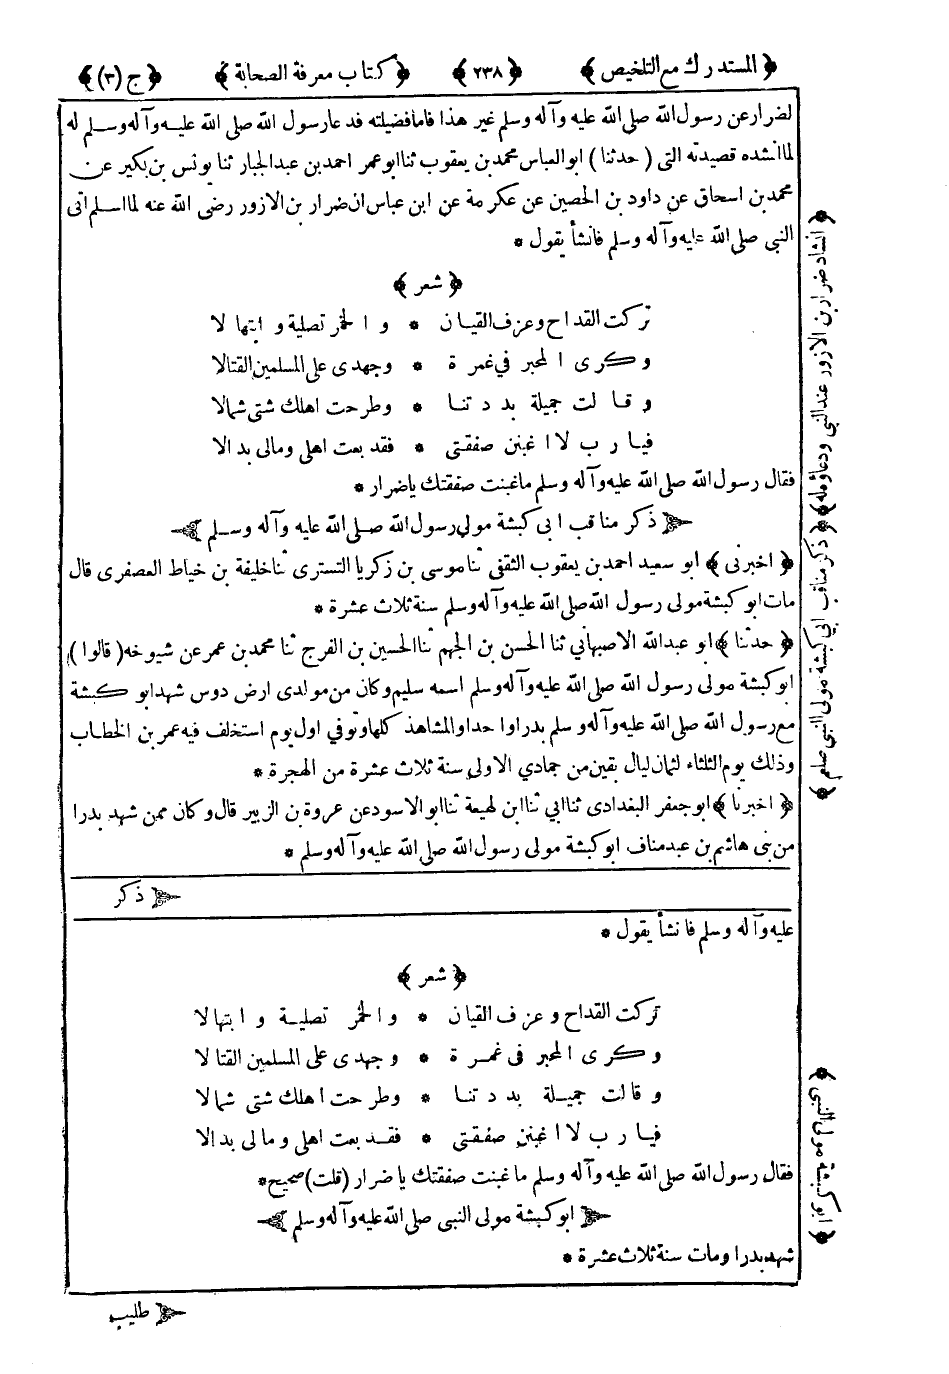 ﴿ المستدرك مع التلخيص ﴾ ﴿ ٢٣٨ ﴾ ﴿ كتاب معرفة الصحابة ﴾ ﴿ ج (٣) ﴾
لضرار عن رسول الله صلى الله عليه وآله وسلم غير هذا فاما فضيلته فدعا رسول الله صلى الله عليه وآله وسلم له
لما انشده قصيدته التى ( حدثنا ) ابو العباس محمد بن يعقوب ثنا ابو عمر احمد بن عبد الجبار ثنا يونس بن بكير عن
محمد بن اسحاق عن داود بن الحصين عن عكرمة عن ابن عباس ان ضرار بن الازور رضى الله عنه لما اسلم اتى
النبى صلى الله عليه وآله وسلم فانشأ يقول *
﴿ شعر ﴾
تركت القداح وعزف القيان * والخمر تصلية وابتهالا
وكرى المحبر فى غمرة * وجهدى على المسلمين القتالا
وقالت جميلة بددتنا * وطرحت اهلك شتى شمالا
فيارب لا اغبنن صفقتى * فقد بعت اهلى ومالى بدالا
فقال رسول الله صلى الله عليه وآله وسلم ما غبنت صفقتك ياضرار *
ذكر مناقب ابى كبشة مولى رسول الله صلى الله عليه وآله وسلم
﴿ اخبرنى ﴾ ابو سعيد احمد بن يعقوب الثقفى ثنا موسى بن زكريا التسترى ثنا خليفة بن خياط العصفرى قال
مات ابو كبشة مولى رسول الله صلى الله عليه وآله وسلم سنة ثلاث عشرة *
﴿ حدثنا ﴾ ابو عبد الله الاصبهانى ثنا الحسن بن الجهم ثنا الحسين بن الفرج ثنا محمد بن عمر عن شيوخه ( قالوا )
ابو كبشة مولى رسول الله صلى الله عليه وآله وسلم اسمه سليم وكان من مولدى ارض دوس شهد ابو كبشة
مع رسول الله صلى الله عليه وآله وسلم بدرا واحدا والمشاهد كلها وتوفي اول يوم استخلف فيه عمر بن الخطاب
وذلك يوم الثلثاء لثمان ليال بقين من جمادي الاولى سنة ثلاث عشرة من الهجرة *
﴿ اخبرنا ﴾ ابو جعفر البغدادى ثنا ابي ثنا ابن لهيعة ثنا ابو الاسود عن عروة بن الزبير قال وكان ممن شهد بدرا
من بنى هاشم بن عبد مناف ابو كبشة مولى رسول الله صلى الله عليه وآله وسلم *
ذكر
﴿ انشاد ضرار بن الازور عند النبى ودعاؤه له ﴾ ﴿ ذكر مناقب ابي كبشة مولى النبى صلعم ﴾
عليه وآله وسلم فانشأ يقول *
﴿ شعر ﴾
تركت القداح وعزف القيان * والخمر تصلية وابتهالا
وكرى المحبر فى غمرة * وجهدى على المسلمين القتالا
وقالت جميلة بددتنا * وطرحت اهلك شتى شمالا
فيارب لا اغبنن صفقتى * فقد بعت اهلى ومالى بدالا
فقال رسول الله صلى الله عليه وآله وسلم ما غبنت صفقتك ياضرار (قلت) صحيح *
ابو كبشة مولى النبى صلى الله عليه وآله وسلم
شهد بدرا ومات سنة ثلاث عشرة *
﴿ ابو كبشة مولى النبى ﴾
طليب